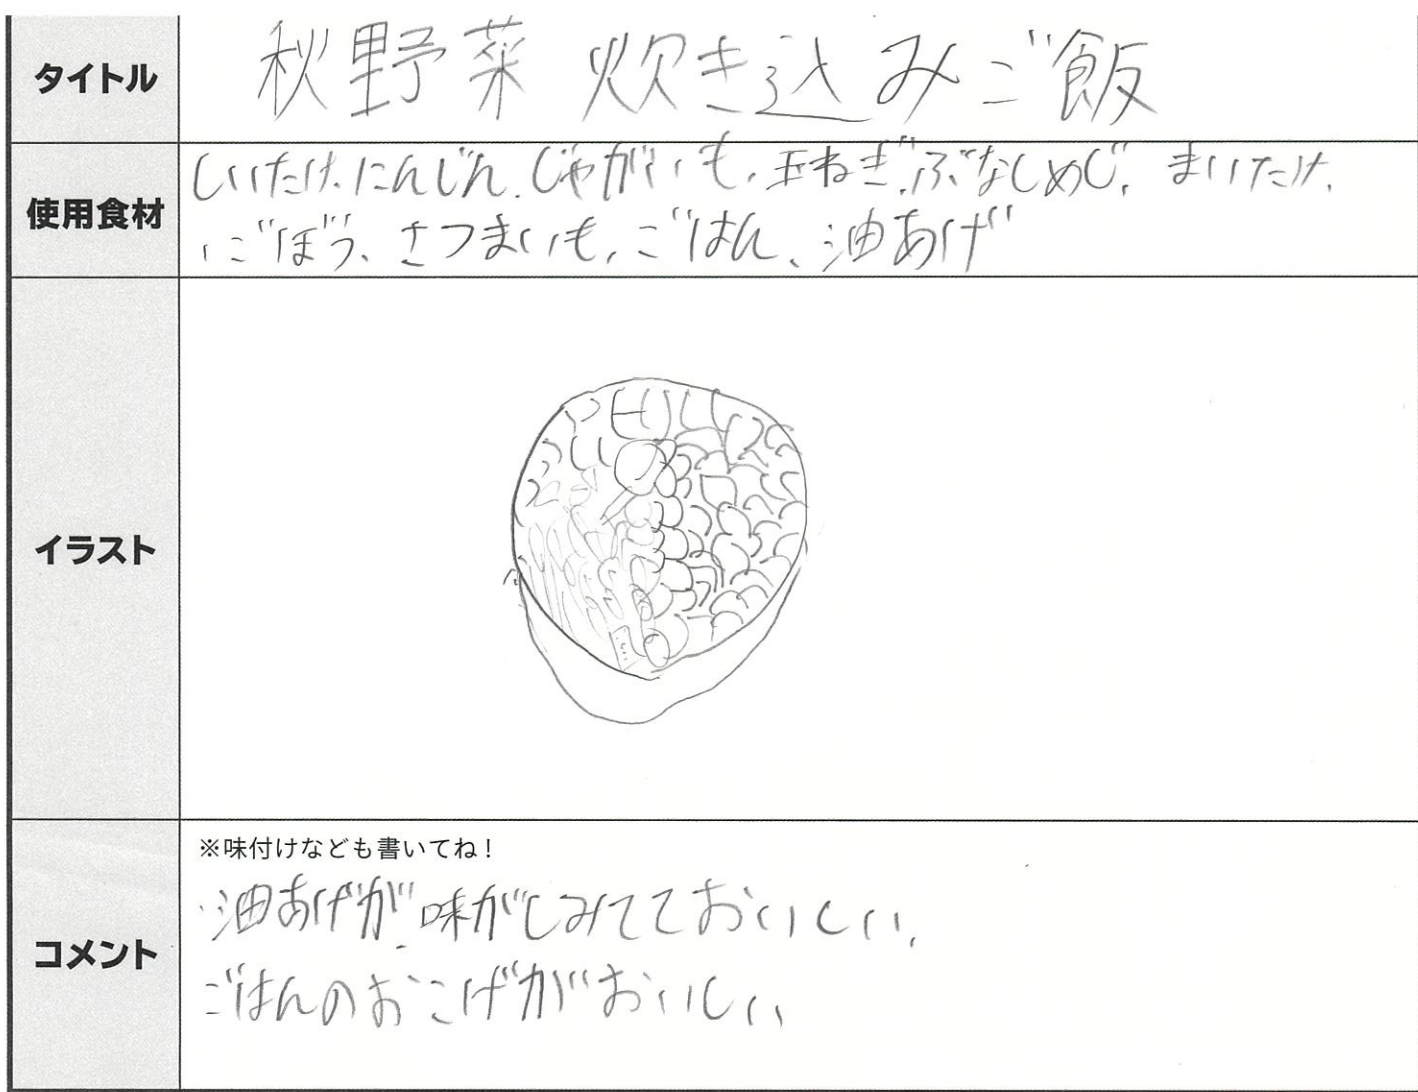 タイトル
秋野菜 炊き込みご飯
使用食材
しいたけ、にんじん、じゃがいも、玉ねぎ、ぶなしめじ、まいたけ、
ごぼう、さつまいも、ごはん、油あげ
イラスト
コメント
※味付けなども書いてね！
油あげが、味がしみてておいしい、
ごはんのおこげがおいしい